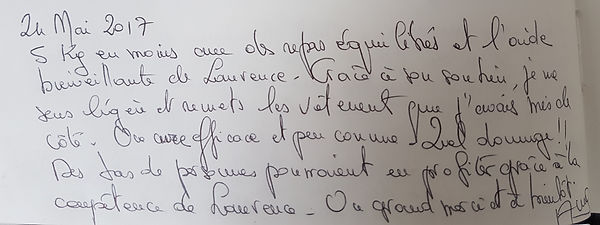 24 Mai 2017
5 Kg en moins avec des repas équilibrés et l'aide
bienveillante de Laurence - Grâce à son soutien, je me
sens légère et remets les vêtement que j'avais mis de
côté. Une cure efficace et peu connue. Quel dommage!!
Des tas de personnes pourraient en profiter grâce à la
compétence de Laurence - Un grand merci et à bientôt.